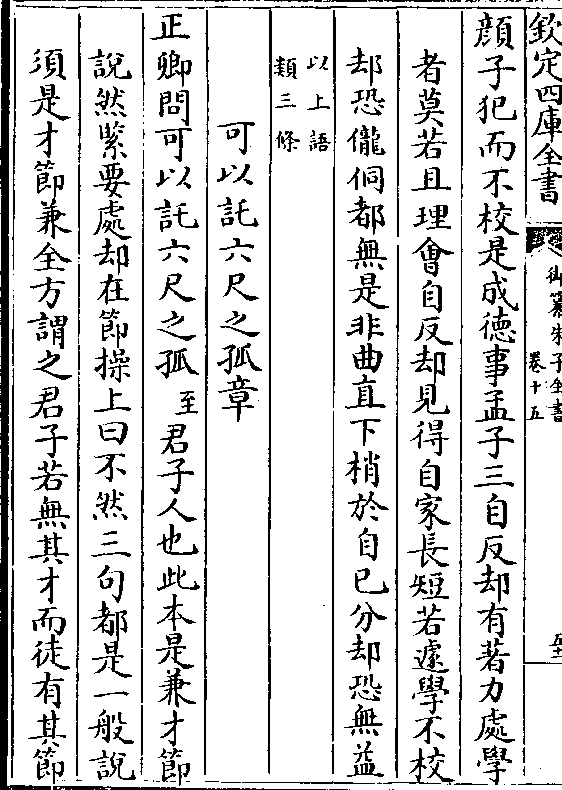 欽定四庫全書
御纂朱子全書
卷十五
顔子犯而不校是成徳事孟子三自反却有著力處學
者莫若且理會自反却見得自家長短若遽學不校
却恐儱侗都無是非曲直下梢於自己分却恐無益
以上語
類三條
可以託六尺之孤章
正卿問可以託六尺之孤至君子人也此本是兼才節
說然緊要處却在節操上曰不然三句都是一般說
須是才節兼全方謂之君子若無其才而徒有其節